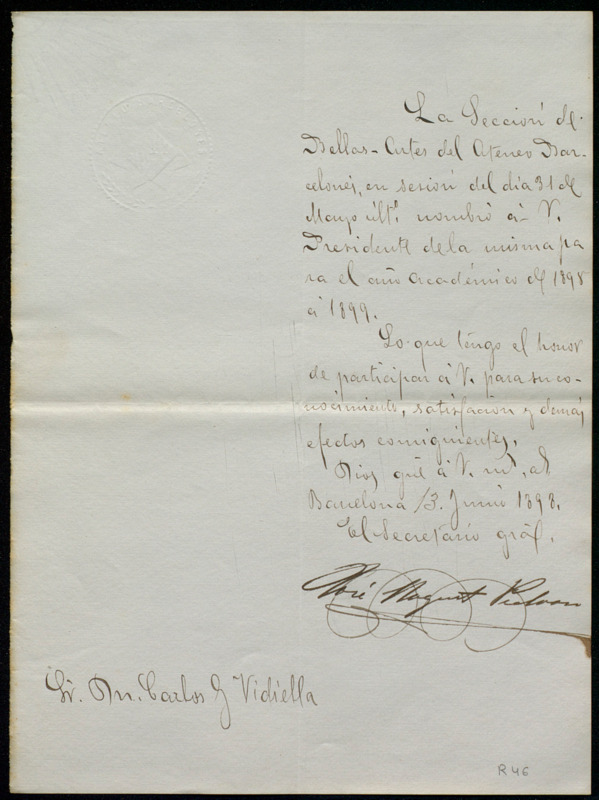 La Sección de
Bellas-Artes del Ateneo Bar-
celonés, en sesión del dia 31 de
Mayo últº nombró á V.
Presidente de la misma pa
ra el año académico de 1898
á 1899.
Lo que tengo el honor
de participar á V. para su co-
nocimiento, satisfacción y demás
efectos consiguientes.
Dios güe á V. mˢ. aˢ
Barcelona 13. Junio 1898.
El Secretario gral.
José Noguet
Sr. Dn. Carlos G Vidiella
R 46